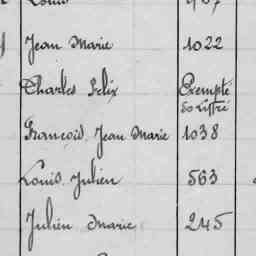 Louis 987
Jean Marie 1022
Charles Félix Exempté
So Liffré
François Jean Marie 1038
Louis Julien 563
Julien Marie 245